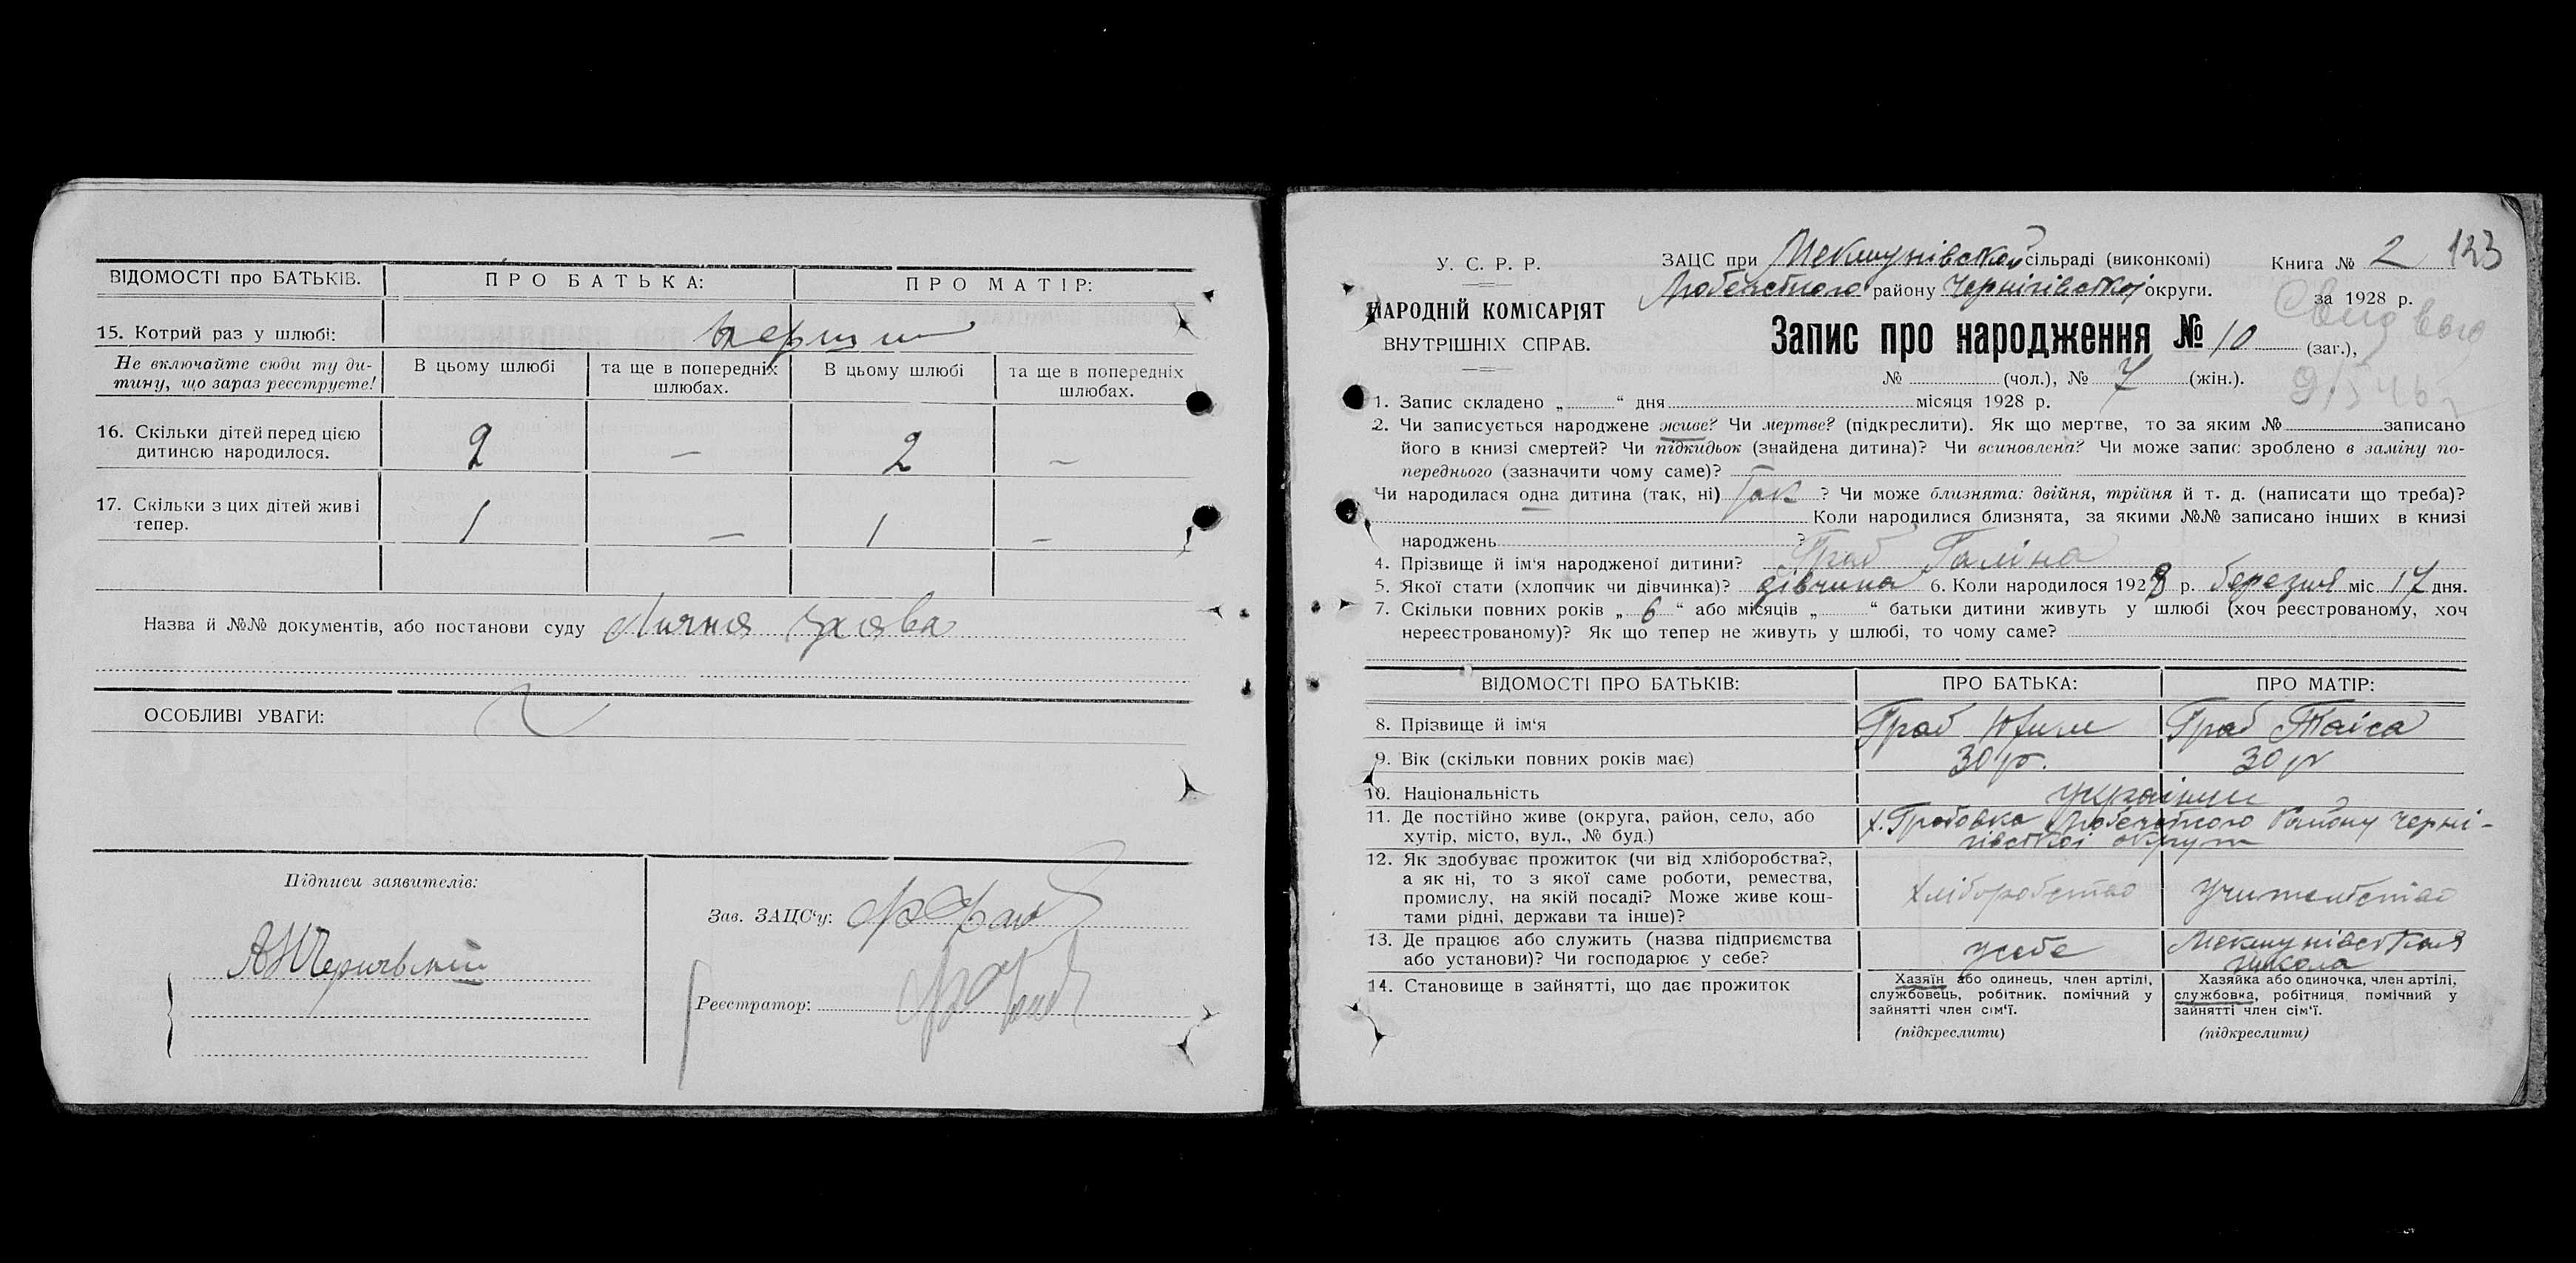 ВІДОМОСТІ про БАТЬКІВ.
ПРО БАТЬКА:
ПРО МАТІР:
15. Котрий раз у шлюбі:
перший
Не включайте сюди ту ди-
тину, що зараз реєструєте!
В цьому шлюбі
та ще в попередніх
шлюбах.
В цьому шлюбі
та ще в попередніх
шлюбах.
16. Скільки дітей перед цією
дитиною народилося.
2 — 2 —
17. Скільки з цих дітей живі
тепер.
1 — 1 —
Назва й №№ документів, або постанови суду Лична заява
ОСОБЛИВІ УВАГИ:
Підписи заявителів:
Зав. ЗАЦС'у:
Реєстратор:
У. С. Р. Р.
НАРОДНІЙ КОМІСАРІЯТ
ВНУТРІШНІХ СПРАВ.
ЗАЦС при сільраді (виконкомі)
району Чернігівської округи.
Книга № 2 123
за 1928 р.
Запис про народження № 10 (заг.),
№ (чол.), № 7 (жін.).
1. Запис складено „ “ дня місяця 1928 р.
2. Чи записується народжене живе? Чи мертве? (підкреслити). Як що мертве, то за яким № записано
його в книзі смертей? Чи підкидьок (знайдена дитина)? Чи всиновлена? Чи може запис зроблено в заміну по-
переднього (зазначити чому саме)?
Чи народилася одна дитина (так, ні) так ? Чи може близнята: двійня, трійня й т. д. (написати що треба)?
Коли народилися близнята, за якими №№ записано інших в книзі
народжень ?
4. Прізвище й ім'я народженої дитини? Граб Галіна
5. Якої стати (хлопчик чи дівчинка)? дівчина 6. Коли народилося 1928 р. березня міс. 17 дня.
7. Скільки повних років „ 6 “ або місяців „ “ батьки дитини живуть у шлюбі (хоч реєстрованому, хоч
нереєстрованому)? Як що тепер не живуть у шлюбі, то чому саме?
ВІДОМОСТІ ПРО БАТЬКІВ:
ПРО БАТЬКА:
ПРО МАТІР:
8. Прізвище й ім'я
Граб Юхим
Граб Таіса
9. Вік (скільки повних років має)
30 р.
30 р
10. Національність
українці
11. Де постійно живе (округа, район, село, або
хутір, місто, вул., № буд.)
х. Грабовка району Черні-
гівської округи
12. Як здобуває прожиток (чи від хліборобства?,
а як ні, то з якої саме роботи, ремества,
промислу, на якій посаді? Може живе кош-
тами рідні, держави та інше)?
хліборобство
учительство
13. Де працює або служить (назва підприємства
або установи)? Чи господарює у себе?
у себе
школа
14. Становище в зайнятті, що дає прожиток
Хазяїн або одинець, член артілі,
службовець, робітник, помічний у
зайнятті член сім'ї.
(підкреслити)
Хазяйка або одиночка, член артілі,
службовка, робітниця, помічний у
зайнятті член сім'ї.
(підкреслити)